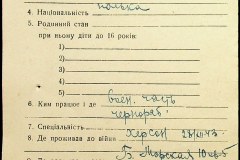 4. Національність полька
5. Родинний стан
при ньому діти до 16 років:
1)
2)
3)
4)
5)
6. Ким працює і де воен. часть
чернораб.
7. Спеціяльність
8. Де проживав до війни Херсон
Б. Морская